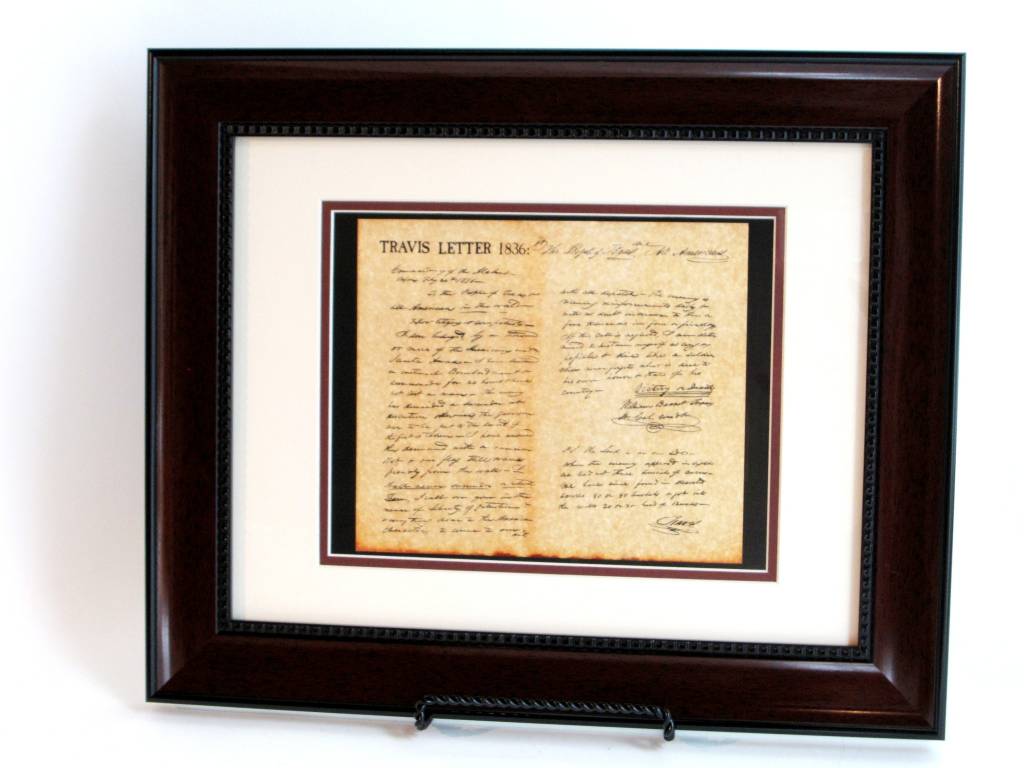 TRAVIS LETTER 1836: To The People of Texas & All Americans
Commandancy of the Alamo
Bejar Feby 24th 1836
To the People of Texas &
all Americans in the world
Fellow citizens & compatriots
I am besieged by a thousand
or more of the Mexicans under
Santa Anna I have sustained
a continual Bombardment &
cannonade for 24 hours & have
not lost a man The enemy
has demanded a surrender at
discretion otherwise the garrison
are to be put to the sword if
the fort is taken I have answered
the demand with a cannon
shot & our flag still waves
proudly from the walls I
shall never surrender or retreat
Then, I call on you in the
name of Liberty, of patriotism
& every thing dear to the American
character, to come to our aid
with all dispatch The enemy is
receiving reinforcements daily &
will no doubt increase to three or
four thousand in four or five days
If this call is neglected I am deter
mined to sustain myself as long as
possible & die like a soldier
who never forgets what is due to
his own honor & that of his
country
Victory or Death
William Barret Travis
Lt. Col. comdt
P.S. The Lord is on our side
When the enemy appeared in sight
we had not three bushels of corn
We have since found in deserted
houses 80 or 90 bushels & got into
the walls 20 or 30 head of Beeves
Travis